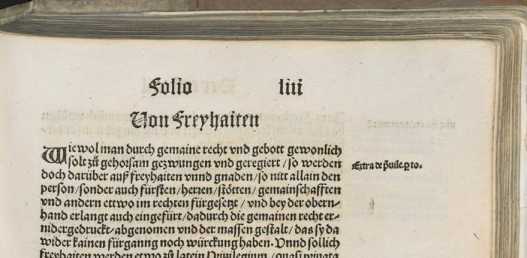 Folio liii
Von Freyhaiten
Wie wol man durch gemaine recht vnd gebott gewonlich
solt zů gehorsam gezwungen vnd geregiert / so werden
doch darüber auß freyhaiten vnnd gnaden / so nitt allain den
person / sonder auch fürsten / herren / stötten / gemainschafften
vnd andern ettwo im rechten fürgesetzt / vnd bey der obern-
hand erlangt auch eingefürt / dadurch die gemainen recht er-
nidergedruckt / abgenomen vnd der massen gestalt / das sy da
wider kainen fürganng noch würckung haben. Vnnd sollich
freyhaiten werden etwo zů latein Priuilegium / quasi priuata
Extra de